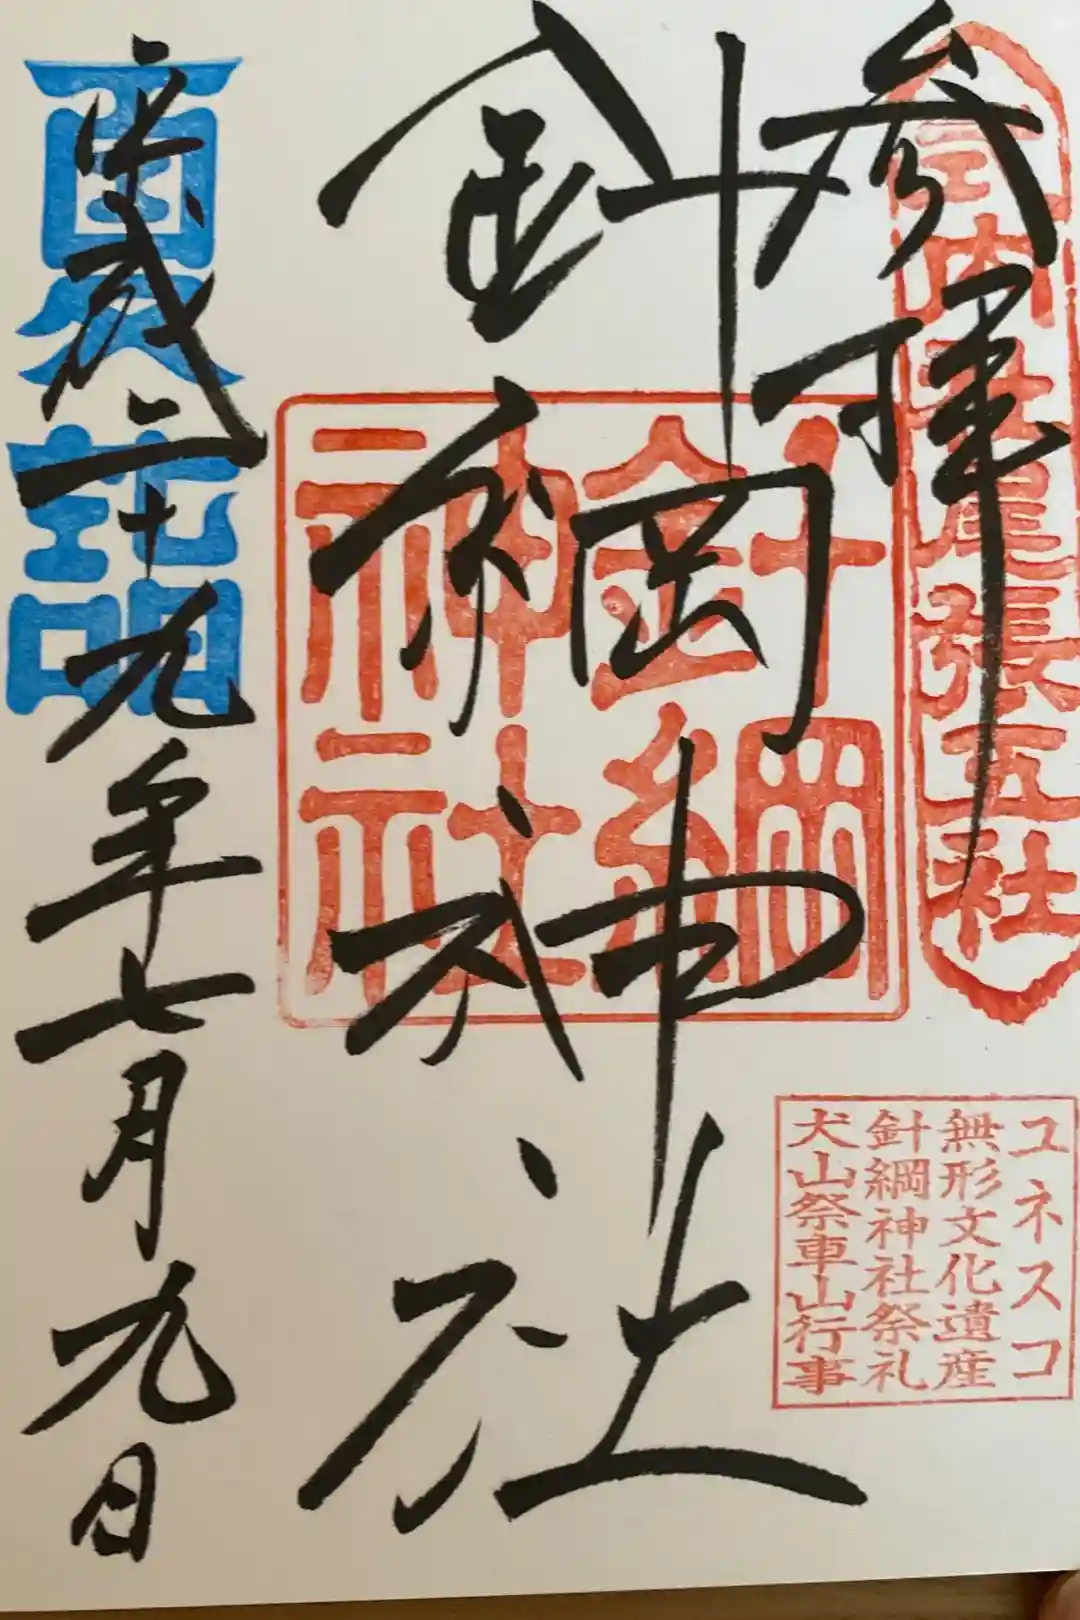 参拝
式内社尾張五社
針綱神社
針綱神社
ユネスコ
無形文化遺産
針綱神社祭礼
犬山祭車山行事
夏詣
平成二十九年七月九日